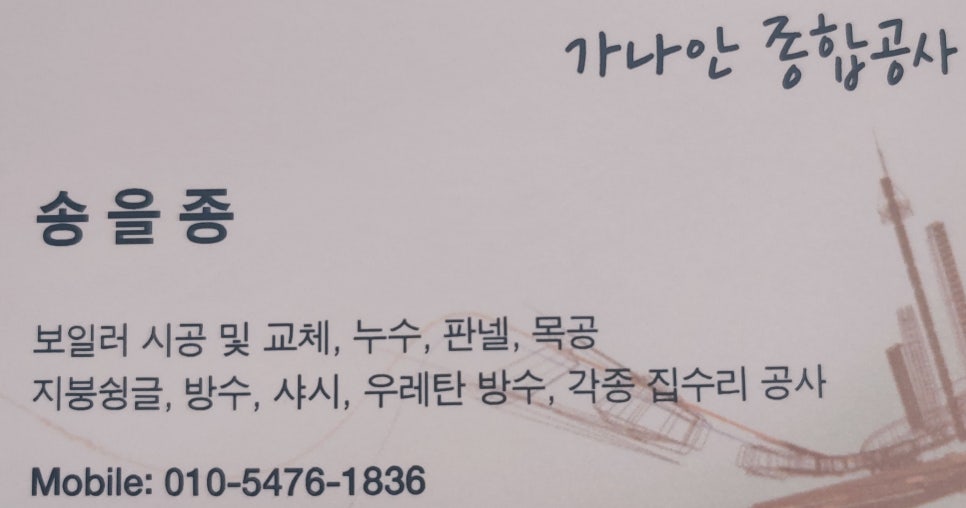 가나안 종합공사
송을종
보일러 시공 및 교체, 누수, 판넬, 목공
지붕슁글, 방수, 샤시, 우레탄 방수, 각종 집수리 공사
Mobile: 010-5476-1836